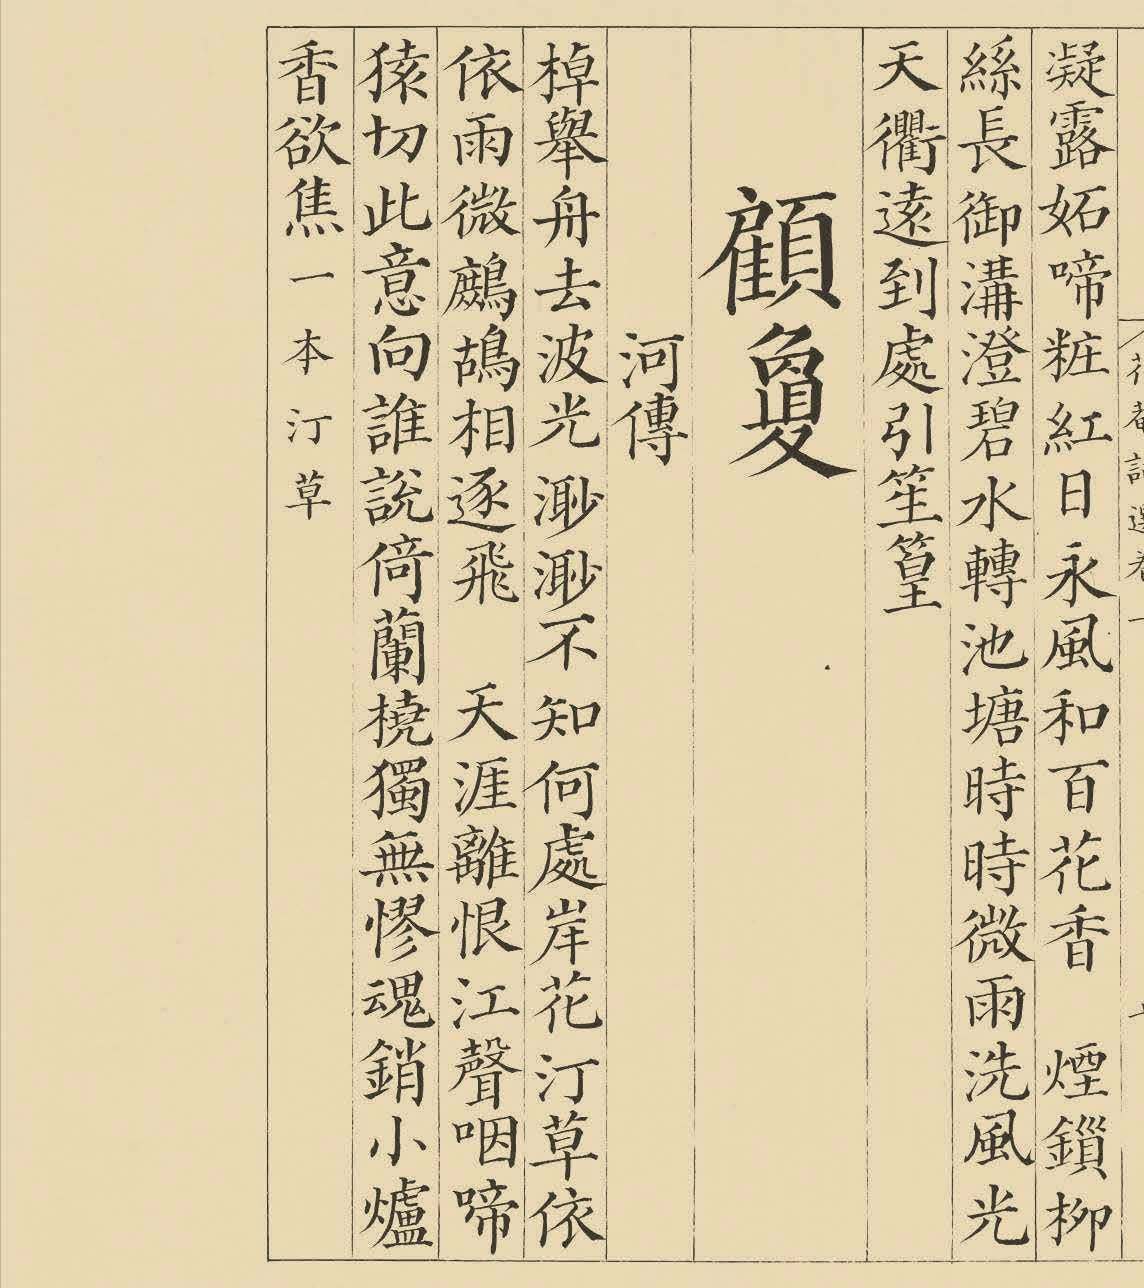 花菴詞選卷一
凝露妬啼粧紅日永風和百花香　煙鎖柳
絲長御溝澄碧水轉池塘時時微雨洗風光
天衢遠到處引笙篁
顧敻
河傳
棹舉舟去波光渺渺不知何處岸花汀草依
依雨微鷓鴣相逐飛　天涯離恨江聲咽啼
猿切此意向誰說倚蘭橈獨無憀魂銷小爐
香欲焦一本汀草